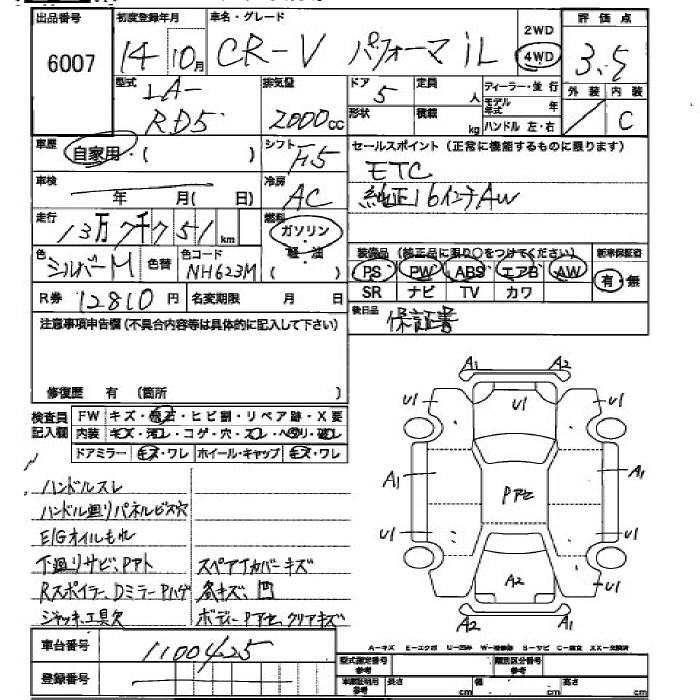 出品番号 初度登録年月 車名・グレード 2WD 評価点
6007 14 10月 CR-V パフォーマ iL 4WD 3.5
型式 LA-RD5 排気量 2000cc ドア 5 定員 人 ディーラー・並行 外装 内装
形状 積載 kg モデル年式 年 ハンドル 左・右 C
車歴 自家用・( ) シフト F5 セールスポイント(正常に機能するものに限ります)
ETC
車検 年 月( 日) 冷房 AC 純正16インチAW
走行 13万7千751km 燃料 ガソリン・軽油
装備品(純正品に限り○をつけてください) 新車保証書
色 シルバーM 色替 色コード NH623M PS PW ABS エアB AW 有・無
R券 12810円 名変期限 月 日 SR ナビ TV カワ
注意事項申告欄(不具合内容等は具体的に記入して下さい) 後日品 保証書
修復歴 有 (箇所 )
検査員記入欄 FW キズ・飛石・ヒビ割・リペア跡・X要
内装 キズ・汚レ・コゲ・穴・スレ・ヘタリ・破レ
ドアミラー キズ・ワレ ホイール・キャップ キズ・ワレ
A1 A2
U1 U1 U1
A1 Pアセ A1
U1 U1
A2 U1
A2 A1
ハンドルスレ
ハンドル廻りパネルビス穴
E/Gオイルもれ
下廻リサビ、Pアト スペアTカバーキズ
Rスポイラ、DミラーPハゲ 各キズ、凹
ジャッキ、工具欠 ボディーPアセ、クリアキズ
A-キズ E-エクボ U-凹み W-補修跡 S-サビ C-腐食 XX-交換済
車台番号 1100425
登録番号 型式指定番号参考 類別区分番号参考
車庫証明用参考 長さ cm 幅 cm 高さ cm